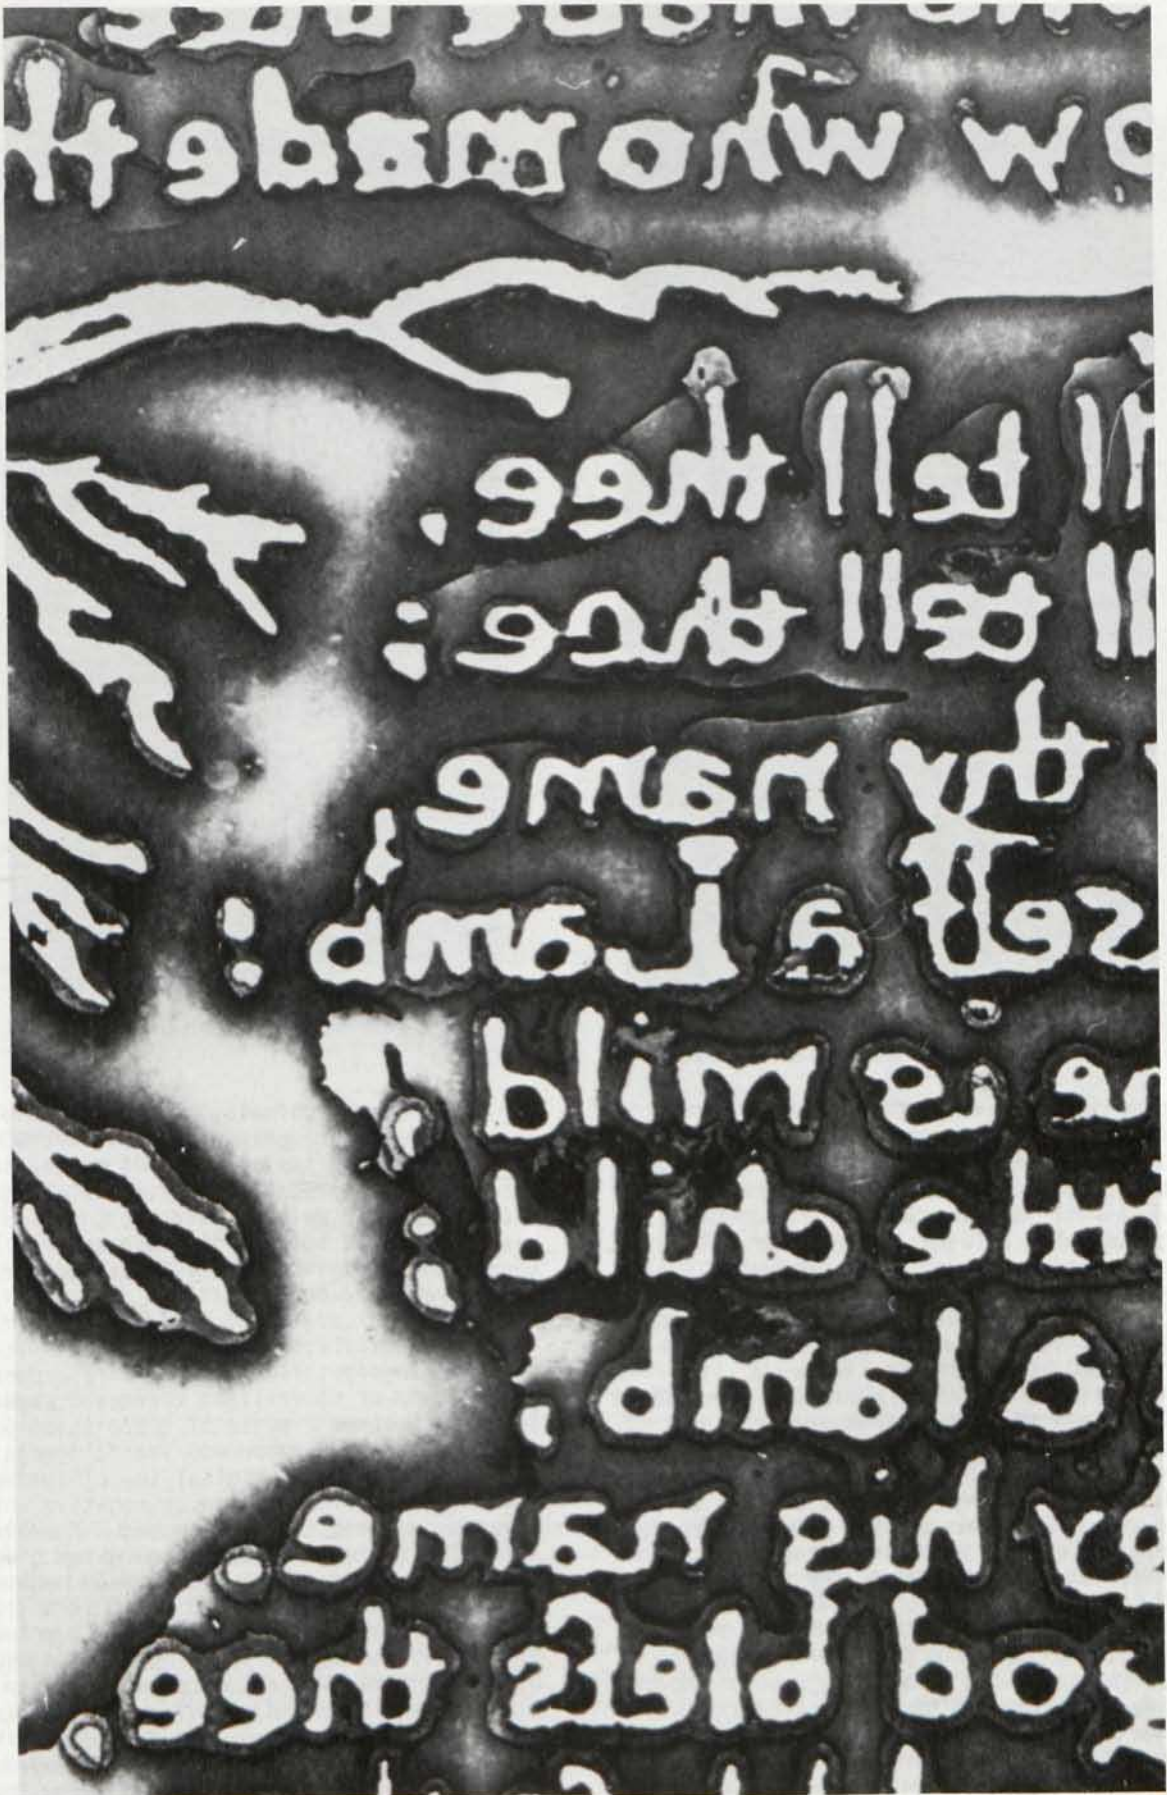 ow who made th
ll tell thee,
ll tell thee:
thy name
self a Lamb:
he is mild,
ttle child:
a lamb,
y his name.
od bleſs thee.